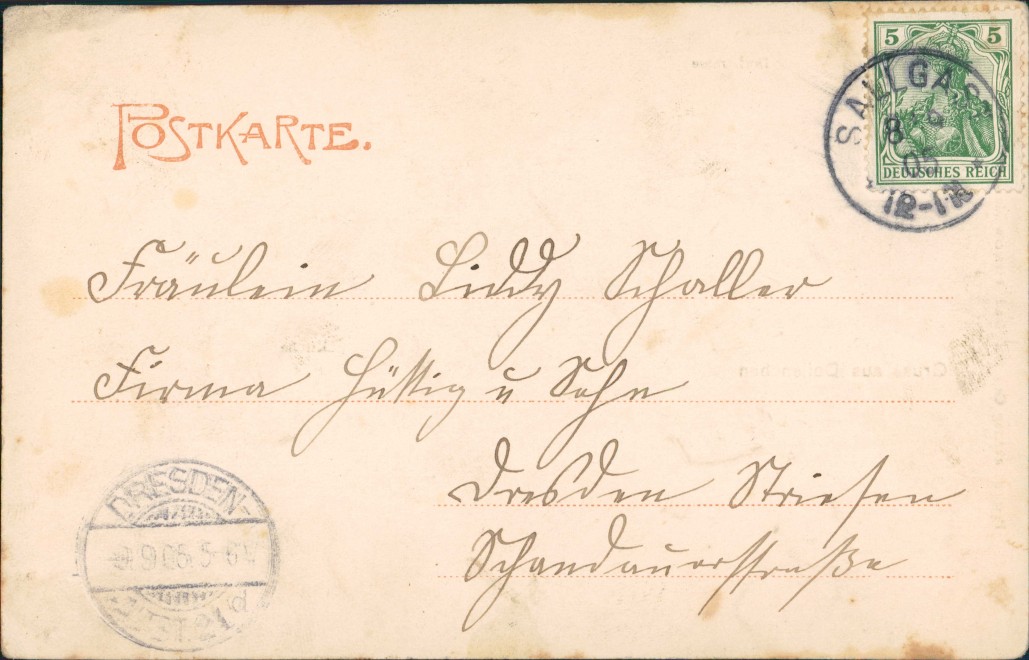 POSTKARTE.
5 5
DEUTSCHES REICH
SALLGAST
8 9
05
12-1N
Fräulein Liddy Schaller
Firma Hüttig u Sohn
Dresden Striesen
Schandauerstraße
DRESDEN-
9.9.05.5-6V
ALTST.21d
Gruss aus Dollenchen